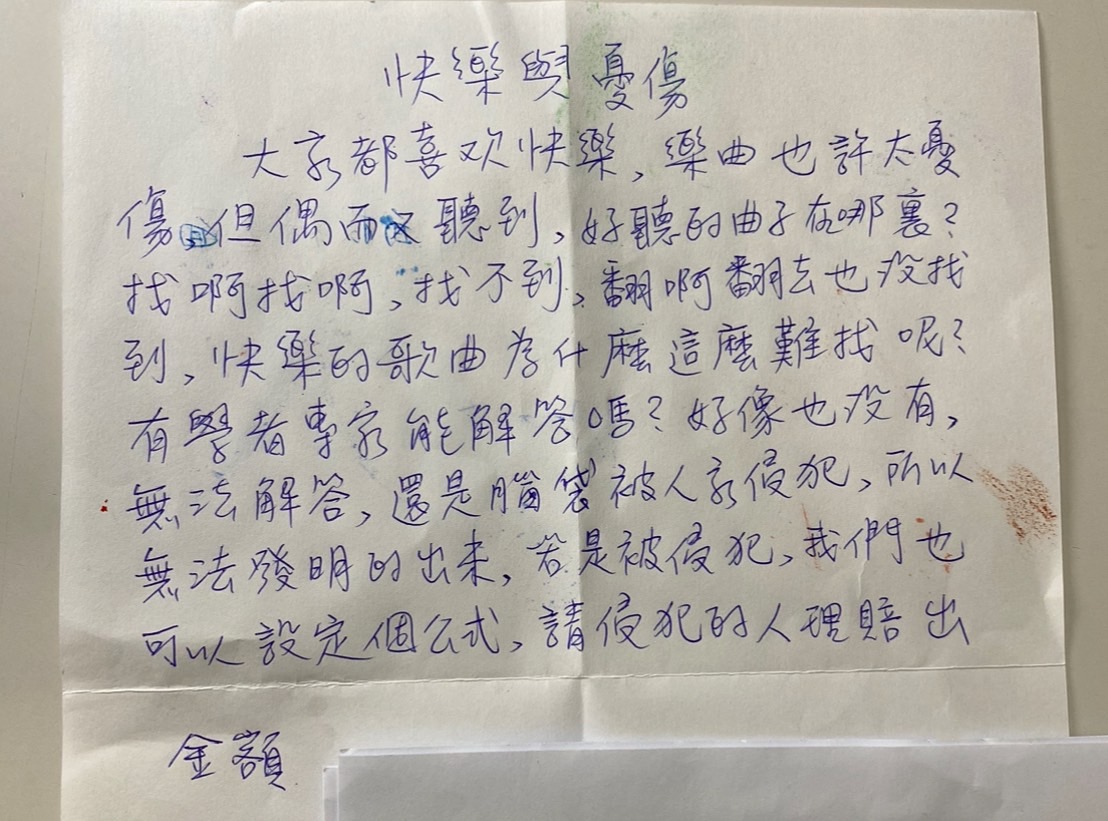 快樂與憂傷
大家都喜欢快樂,樂曲也許太憂
傷,但偶而聽到,好聽的曲子在哪裏?
找啊找啊,找不到,翻啊翻去也沒找
到,快樂的歌曲為什麼這麼難找呢?
有學者專家能解答嗎?好像也沒有,
無法解答,還是腦袋被人家侵犯,所以
無法發明的出来,若是被侵犯,我們也
可以設定個公式,請侵犯的人理賠出
金額